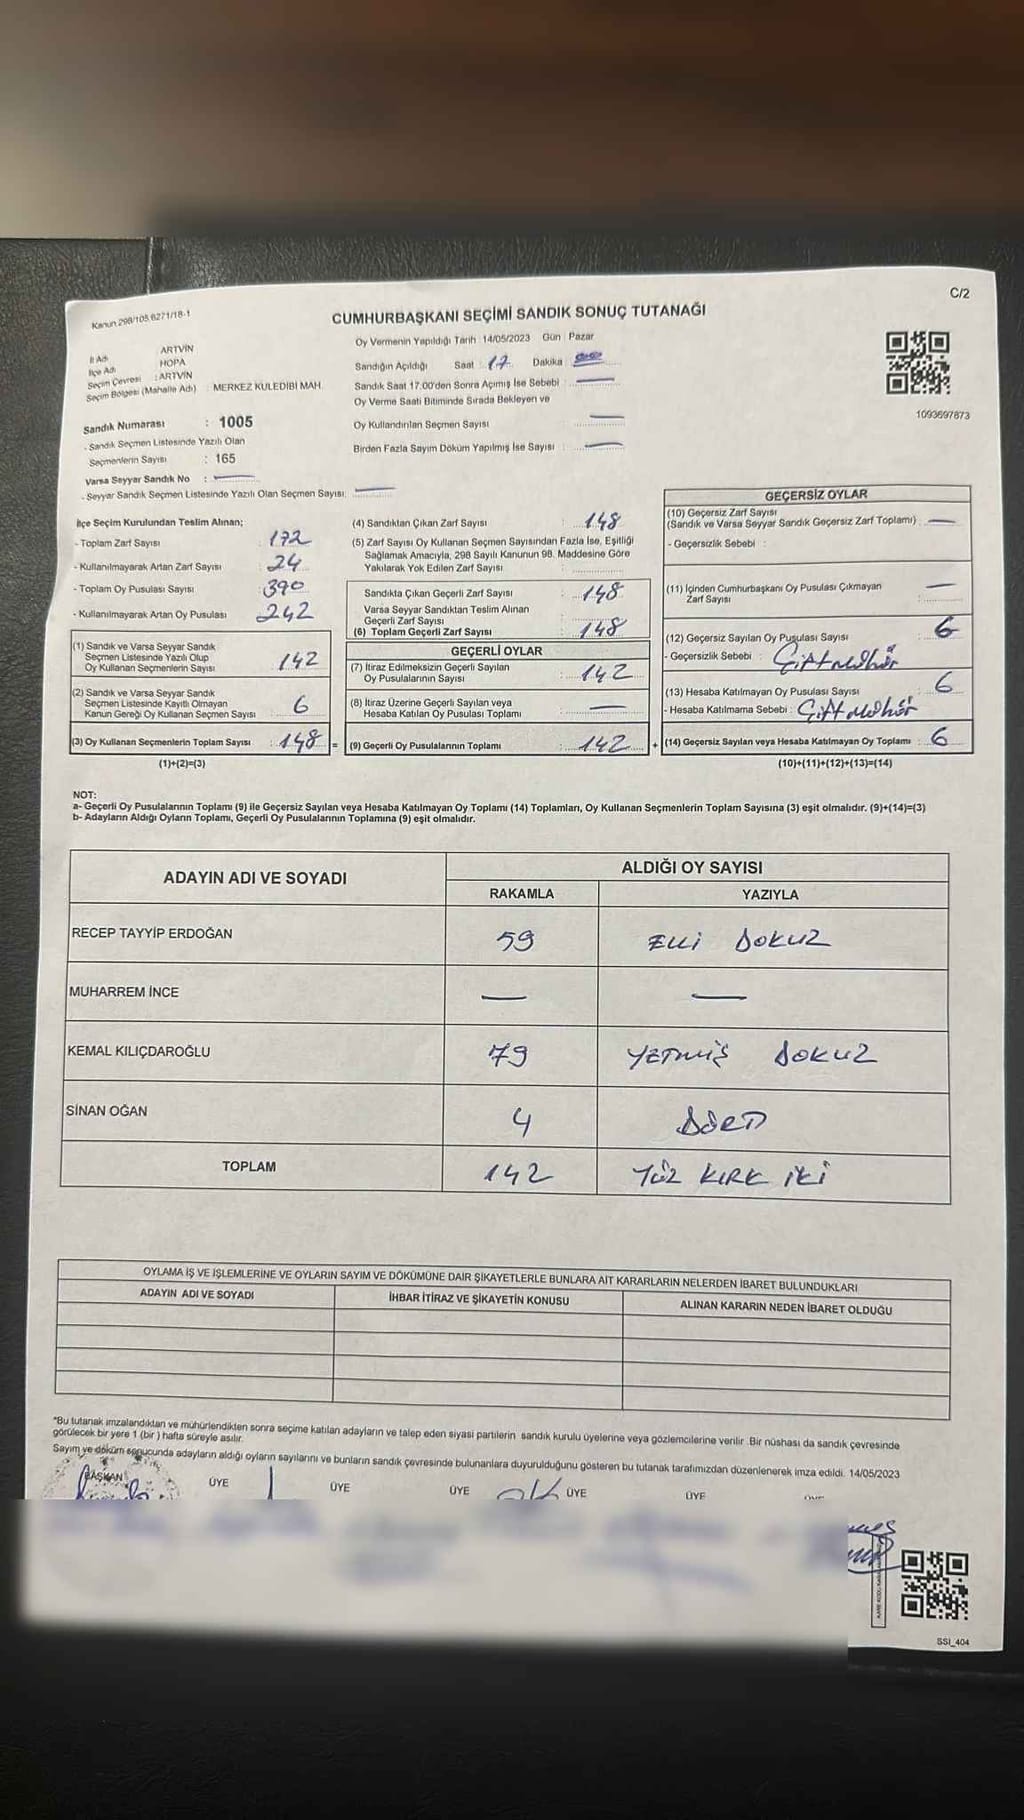 C/2
Kanun 298/105.6271/18-1
CUMHURBAŞKANI SEÇİMİ SANDIK SONUÇ TUTANAĞI
İl Adı : ARTVİN
İlçe Adı : HOPA
Seçim Çevresi : ARTVİN
Seçim Bölgesi (Mahalle Adı) : MERKEZ KULEDİBİ MAH.
Sandık Numarası : 1005
- Sandık Seçmen Listesinde Yazılı Olan
Seçmenlerin Sayısı : 165
Varsa Seyyar Sandık No : —
- Seyyar Sandık Seçmen Listesinde Yazılı Olan Seçmen Sayısı: —
Oy Vermenin Yapıldığı Tarih :14/05/2023 Gün Pazar
Sandığın Açıldığı Saat : 17 Dakika
Sandık Saat 17.00'den Sonra Açımış İse Sebebi : —
Oy Verme Saati Bitiminde Sırada Bekleyen ve
Oy Kullandırılan Seçmen Sayısı —
Birden Fazla Sayım Döküm Yapılmış İse Sayısı : —
1093697873
İlçe Seçim Kurulundan Teslim Alınan;
- Toplam Zarf Sayısı : 172
- Kullanılmayarak Artan Zarf Sayısı : 24
- Toplam Oy Pusulası Sayısı : 390
- Kullanılmayarak Artan Oy Pusulası : 242
(1) Sandık ve Varsa Seyyar Sandık
Seçmen Listesinde Yazılı Olup
Oy Kullanan Seçmenlerin Sayısı : 142
(2) Sandık ve Varsa Seyyar Sandık
Seçmen Listesinde Kayıtlı Olmayan
Kanun Gereği Oy Kullanan Seçmen Sayısı : 6
(3) Oy Kullanan Seçmenlerin Toplam Sayısı : 148 =
(1)+(2)=(3)
(4) Sandıktan Çıkan Zarf Sayısı : 148
(5) Zarf Sayısı Oy Kullanan Seçmen Sayısından Fazla İse, Eşitliği
Sağlamak Amacıyla, 298 Sayılı Kanunun 98. Maddesine Göre
Yakılarak Yok Edilen Zarf Sayısı :
Sandıkta Çıkan Geçerli Zarf Sayısı : 148
Varsa Seyyar Sandıktan Teslim Alınan
Geçerli Zarf Sayısı :
(6) Toplam Geçerli Zarf Sayısı : 148
GEÇERLİ OYLAR
(7) İtiraz Edilmeksizin Geçerli Sayılan
Oy Pusulalarının Sayısı : 142
(8) İtiraz Üzerine Geçerli Sayılan veya
Hesaba Katılan Oy Pusulası Toplamı : —
(9) Geçerli Oy Pusulalarının Toplamı : 142 +
GEÇERSİZ OYLAR
(10) Geçersiz Zarf Sayısı
(Sandık ve Varsa Seyyar Sandık Geçersiz Zarf Toplamı) : —
- Geçersizlik Sebebi :
(11) İçinden Cumhurbaşkanı Oy Pusulası Çıkmayan
Zarf Sayısı : —
(12) Geçersiz Sayılan Oy Pusulası Sayısı : 6
- Geçersizlik Sebebi : Çift mühür
(13) Hesaba Katılmayan Oy Pusulası Sayısı : 6
- Hesaba Katılmama Sebebi : Çift mühür
(14) Geçersiz Sayılan veya Hesaba Katılmayan Oy Toplamı : 6
(10)+(11)+(12)+(13)=(14)
NOT:
a- Geçerli Oy Pusulalarının Toplamı (9) ile Geçersiz Sayılan veya Hesaba Katılmayan Oy Toplamı (14) Toplamları, Oy Kullanan Seçmenlerin Toplam Sayısına (3) eşit olmalıdır. (9)+(14)=(3)
b- Adayların Aldığı Oyların Toplamı, Geçerli Oy Pusulalarının Toplamına (9) eşit olmalıdır.
ADAYIN ADI VE SOYADI ALDIĞI OY SAYISI
RAKAMLA YAZIYLA
RECEP TAYYİP ERDOĞAN 59 Elli DOKUZ
MUHARREM İNCE — —
KEMAL KILIÇDAROĞLU 79 YETMİŞ DOKUZ
SİNAN OĞAN 4 DÖRT
TOPLAM 142 YÜZ KIRK İKİ
OYLAMA İŞ VE İŞLEMLERİNE VE OYLARIN SAYIM VE DÖKÜMÜNE DAİR ŞİKAYETLERLE BUNLARA AİT KARARLARIN NELERDEN İBARET BULUNDUKLARI
ADAYIN ADI VE SOYADI İHBAR İTİRAZ VE ŞİKAYETİN KONUSU ALINAN KARARIN NEDEN İBARET OLDUĞU
*Bu tutanak imzalandıktan ve mühürlendikten sonra seçime katılan adayların ve talep eden siyasi partilerin sandık kurulu üyelerine veya gözlemcilerine verilir .Bir nüshası da sandık çevresinde
görülecek bir yere 1 (bir ) hafta süreyle asılır.
Sayım ve döküm sonucunda adayların aldığı oyların sayılarını ve bunların sandık çevresinde bulunanlara duyurulduğunu gösteren bu tutanak tarafımızdan düzenlenerek imza edildi. 14/05/2023
BAŞKAN ÜYE ÜYE ÜYE ÜYE ÜYE
SSI_404